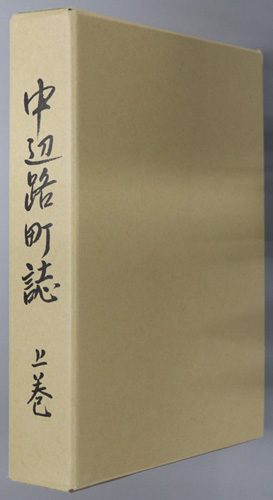 中辺路町誌
上巻